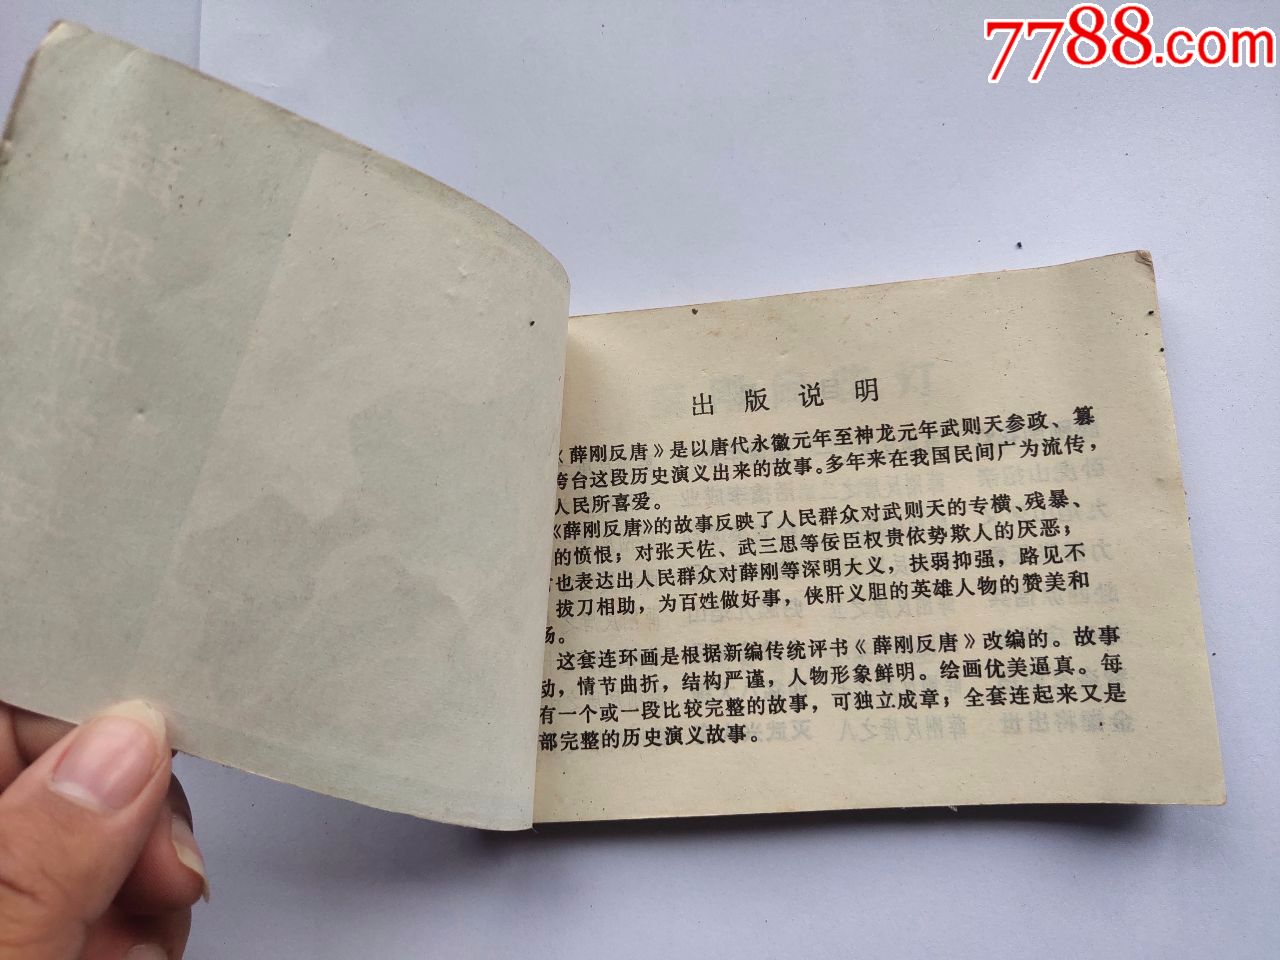 7788.com
出版说明
《薛刚反唐》是以唐代永徽元年至神龙元年武则天参政、篡
台这段历史演义出来的故事。多年来在我国民间广为流传，
人民所喜爱。
《薛刚反唐》的故事反映了人民群众对武则天的专横、残暴、
的愤恨；对张天佐、武三思等佞臣权贵依势欺人的厌恶；
也表达出人民群众对薛刚等深明大义，扶弱抑强，路见不
拔刀相助，为百姓做好事，侠肝义胆的英雄人物的赞美和
扬。
这套连环画是根据新编传统评书《薛刚反唐》改编的。故事
动，情节曲折，结构严谨，人物形象鲜明。绘画优美逼真。每
有一个或一段比较完整的故事，可独立成章；全套连起来又是
部完整的历史演义故事。